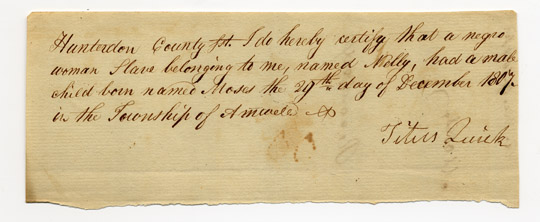 Hunterdon County Ss. I do hereby certify that a negro
woman Slave belonging to me, named Nelly, had a male
child born named Moses the 29th day of December 1807
in the Township of Amwell &
Titus Quick